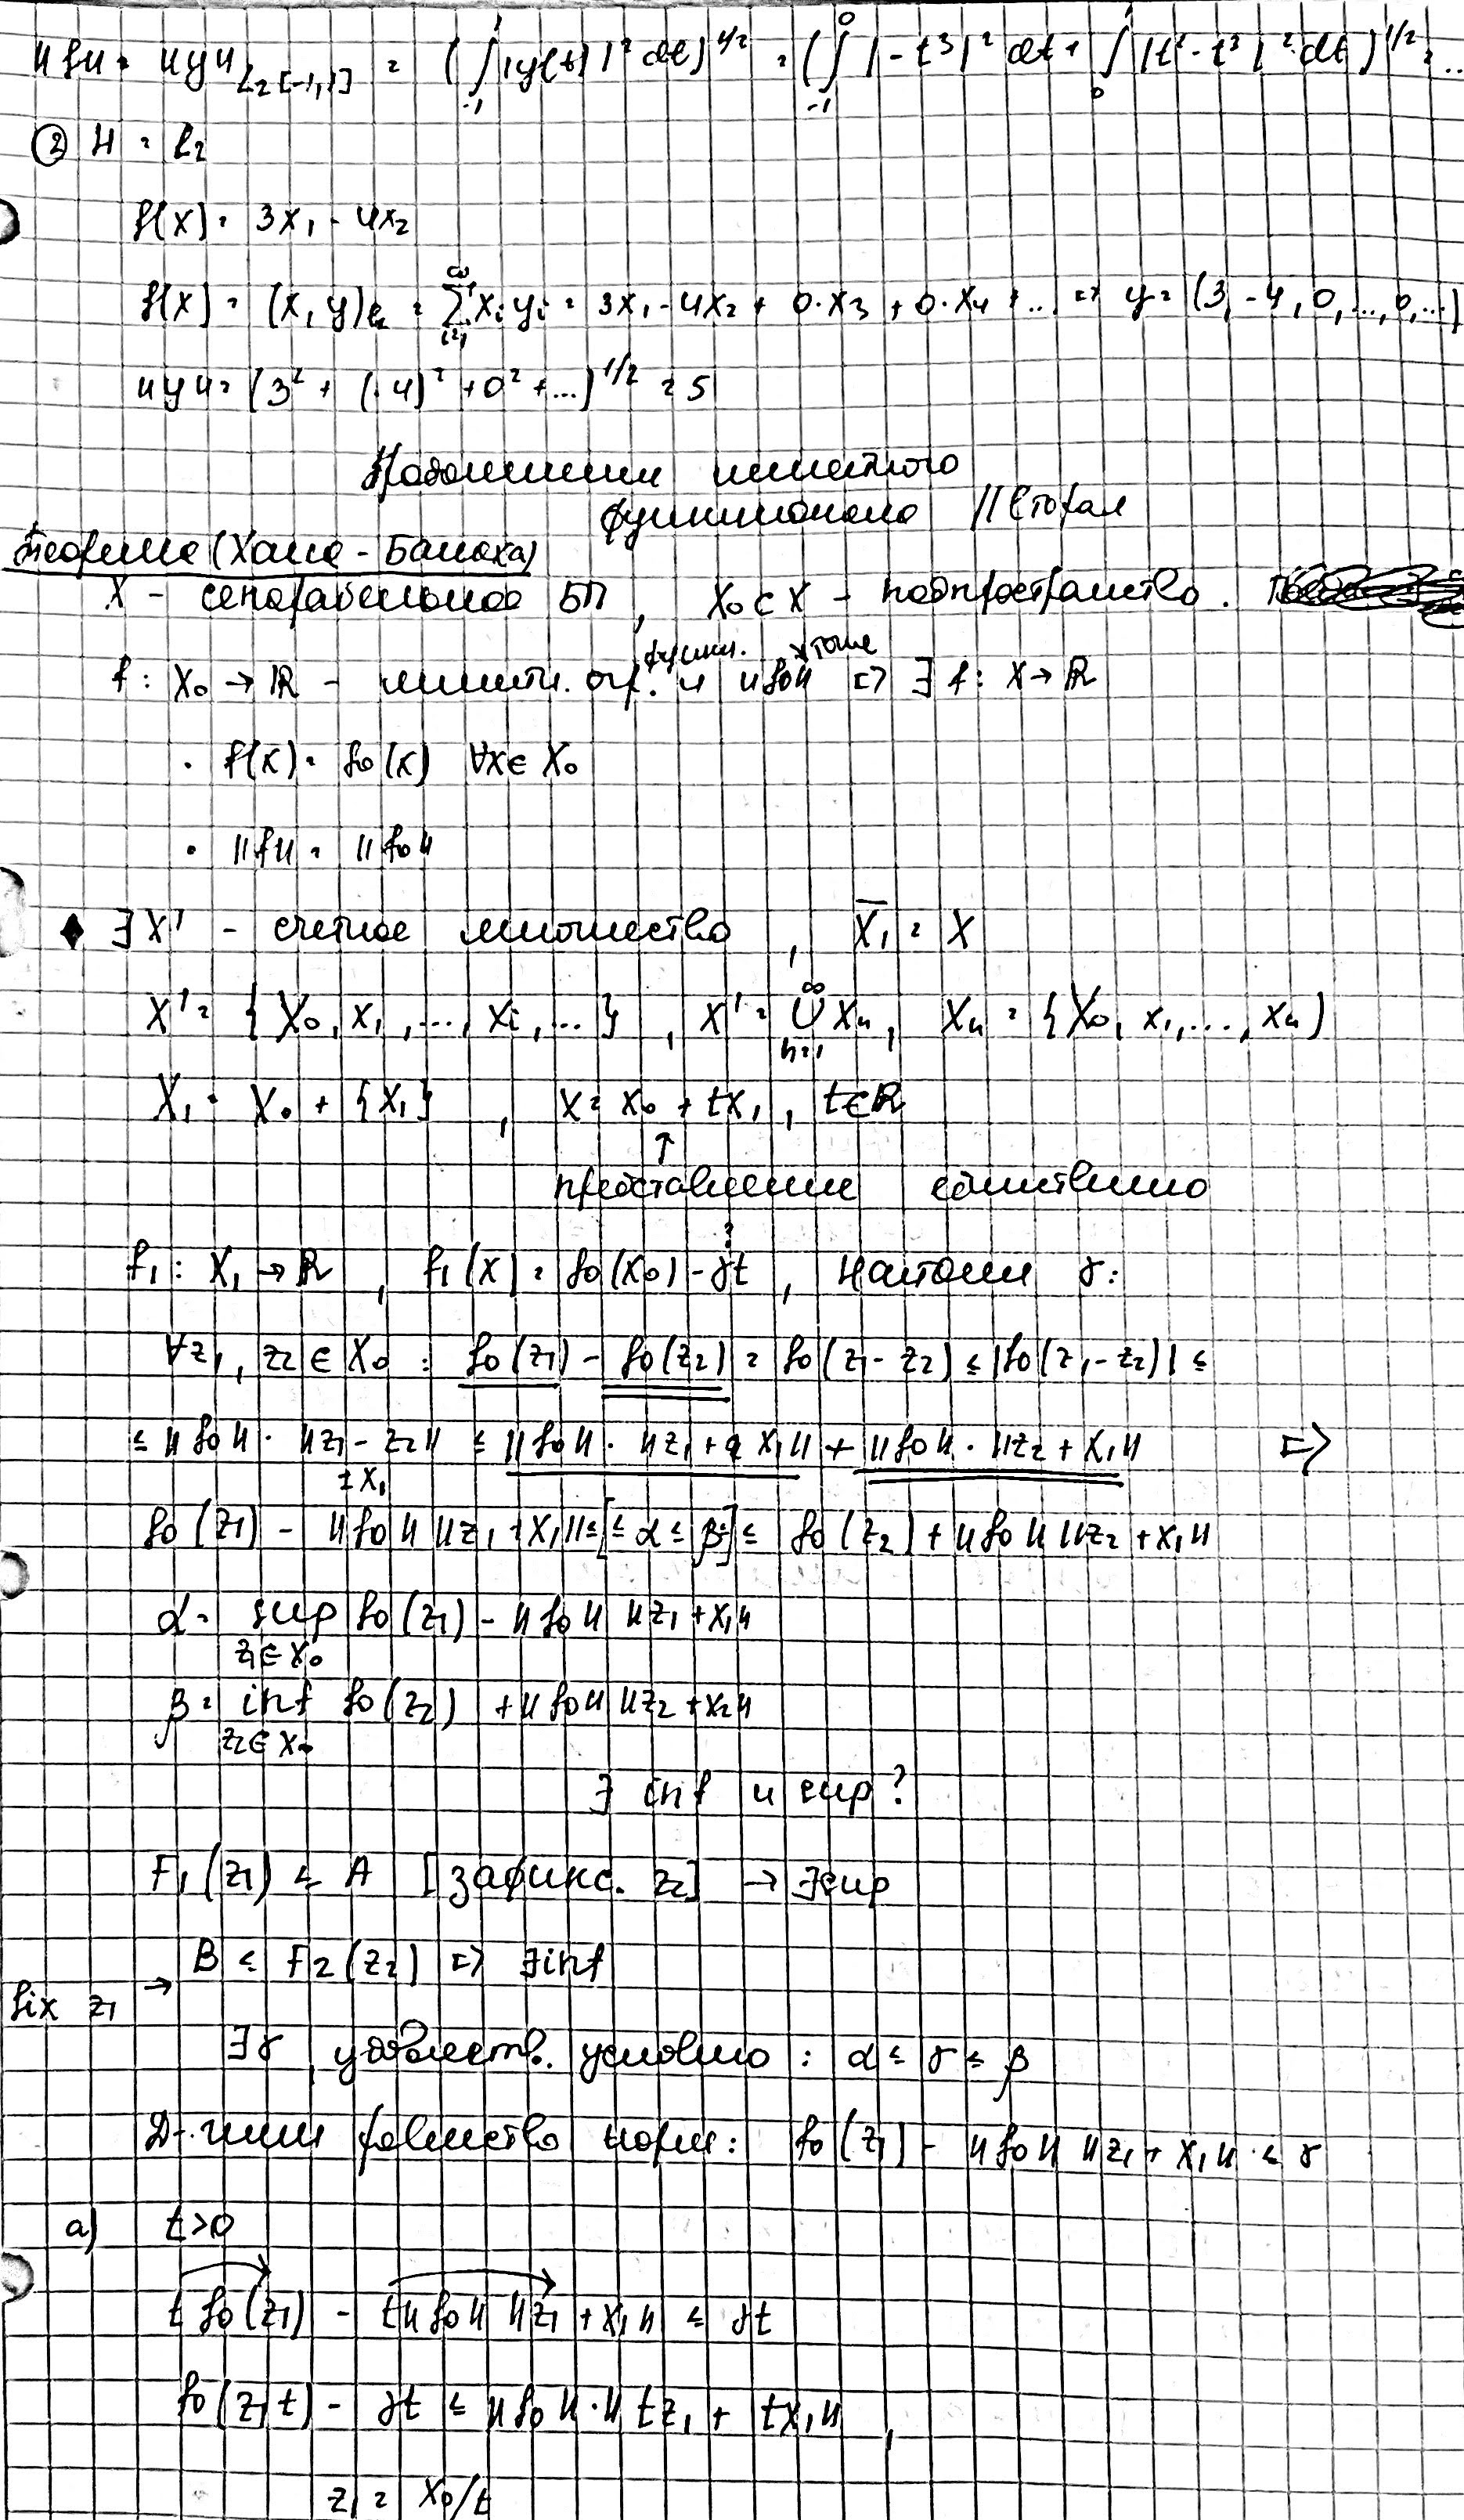 ||f|| = ||y||_{L_2[-1,1]} = (∫_{-1}^{1} |y(t)|² dt)^{1/2} = (∫_{-1}^{0} |-t³|² dt + ∫_{0}^{1} |t² - t³|² dt)^{1/2} = ...
② H = l₂
f(x) = 3x₁ - 4x₂
f(x) = (x, y)_{l₂} = ∑_{i=1}^{∞} xᵢ yᵢ = 3x₁ - 4x₂ + 0·x₃ + 0·x₄ + ... => y = (3, -4, 0, ..., 0, ...)
||y|| = (3² + (-4)² + 0² + ...)^{1/2} = 5
Продолжение линейного
функционала // Вторая
Теорема (Хана - Банаха)
X - сепарабельное БП, X₀ ⊂ X - подпространство.
функц. тоже
f: X₀ → ℝ - линейн. огр. и ||f₀|| => ∃ f: X → ℝ
· f(x) = f₀(x) ∀x ∈ X₀
· ||f|| = ||f₀||
♦ ∃ X' - счетное множество, X̄₁ = X
X' = {X₀, x₁, ..., xᵢ, ...}, X' = ⋃_{n=1}^{∞} Xₙ, Xₙ = {X₀, x₁, ..., xₙ}
X₁ = X₀ + {x₁}, x = x₀ + tx₁, t ∈ ℝ
↑
представление единственно
?
f₁: X₁ → ℝ, f₁(x) = f₀(x₀) - γt, найдем γ:
∀z₁, z₂ ∈ X₀ : f₀(z₁) - f₀(z₂) = f₀(z₁ - z₂) ≤ |f₀(z₁ - z₂)| ≤
≤ ||f₀|| · ||z₁ - z₂|| ≤ ||f₀|| · ||z₁ + x₁|| + ||f₀|| · ||z₂ + x₁|| =>
± x₁
f₀(z₁) - ||f₀|| ||z₁ + x₁|| ≤ [≤ α ≤ β ≤] ≤ f₀(z₂) + ||f₀|| ||z₂ + x₁||
α = sup_{z₁ ∈ X₀} f₀(z₁) - ||f₀|| ||z₁ + x₁||
β = inf_{z₂ ∈ X₀} f₀(z₂) + ||f₀|| ||z₂ + x₂||
∃ inf и sup?
F₁(z₁) ≤ A [зафикс. z₂] → ∃ sup
B ≤ F₂(z₂) => ∃ inf
fix z₁ →
∃ γ, удовлетв. условию : α ≤ γ ≤ β
Д-жем равенство норм: f₀(z₁) - ||f₀|| ||z₁ + x₁|| ≤ γ
а) t > 0
t f₀(z₁) - t ||f₀|| ||z₁ + x₁|| ≤ γt
f₀(z₁t) - γt ≤ ||f₀|| · || tz₁ + tx₁||,
z₁ = x₀/t